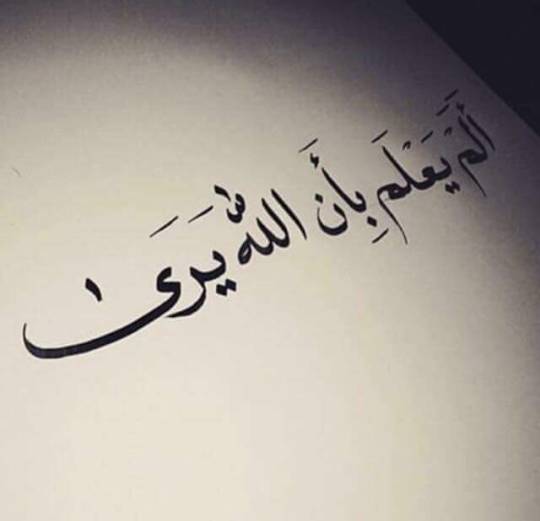 أَلَمْ يَعْلَم بِأَن اللّٰه يَرَىٰ